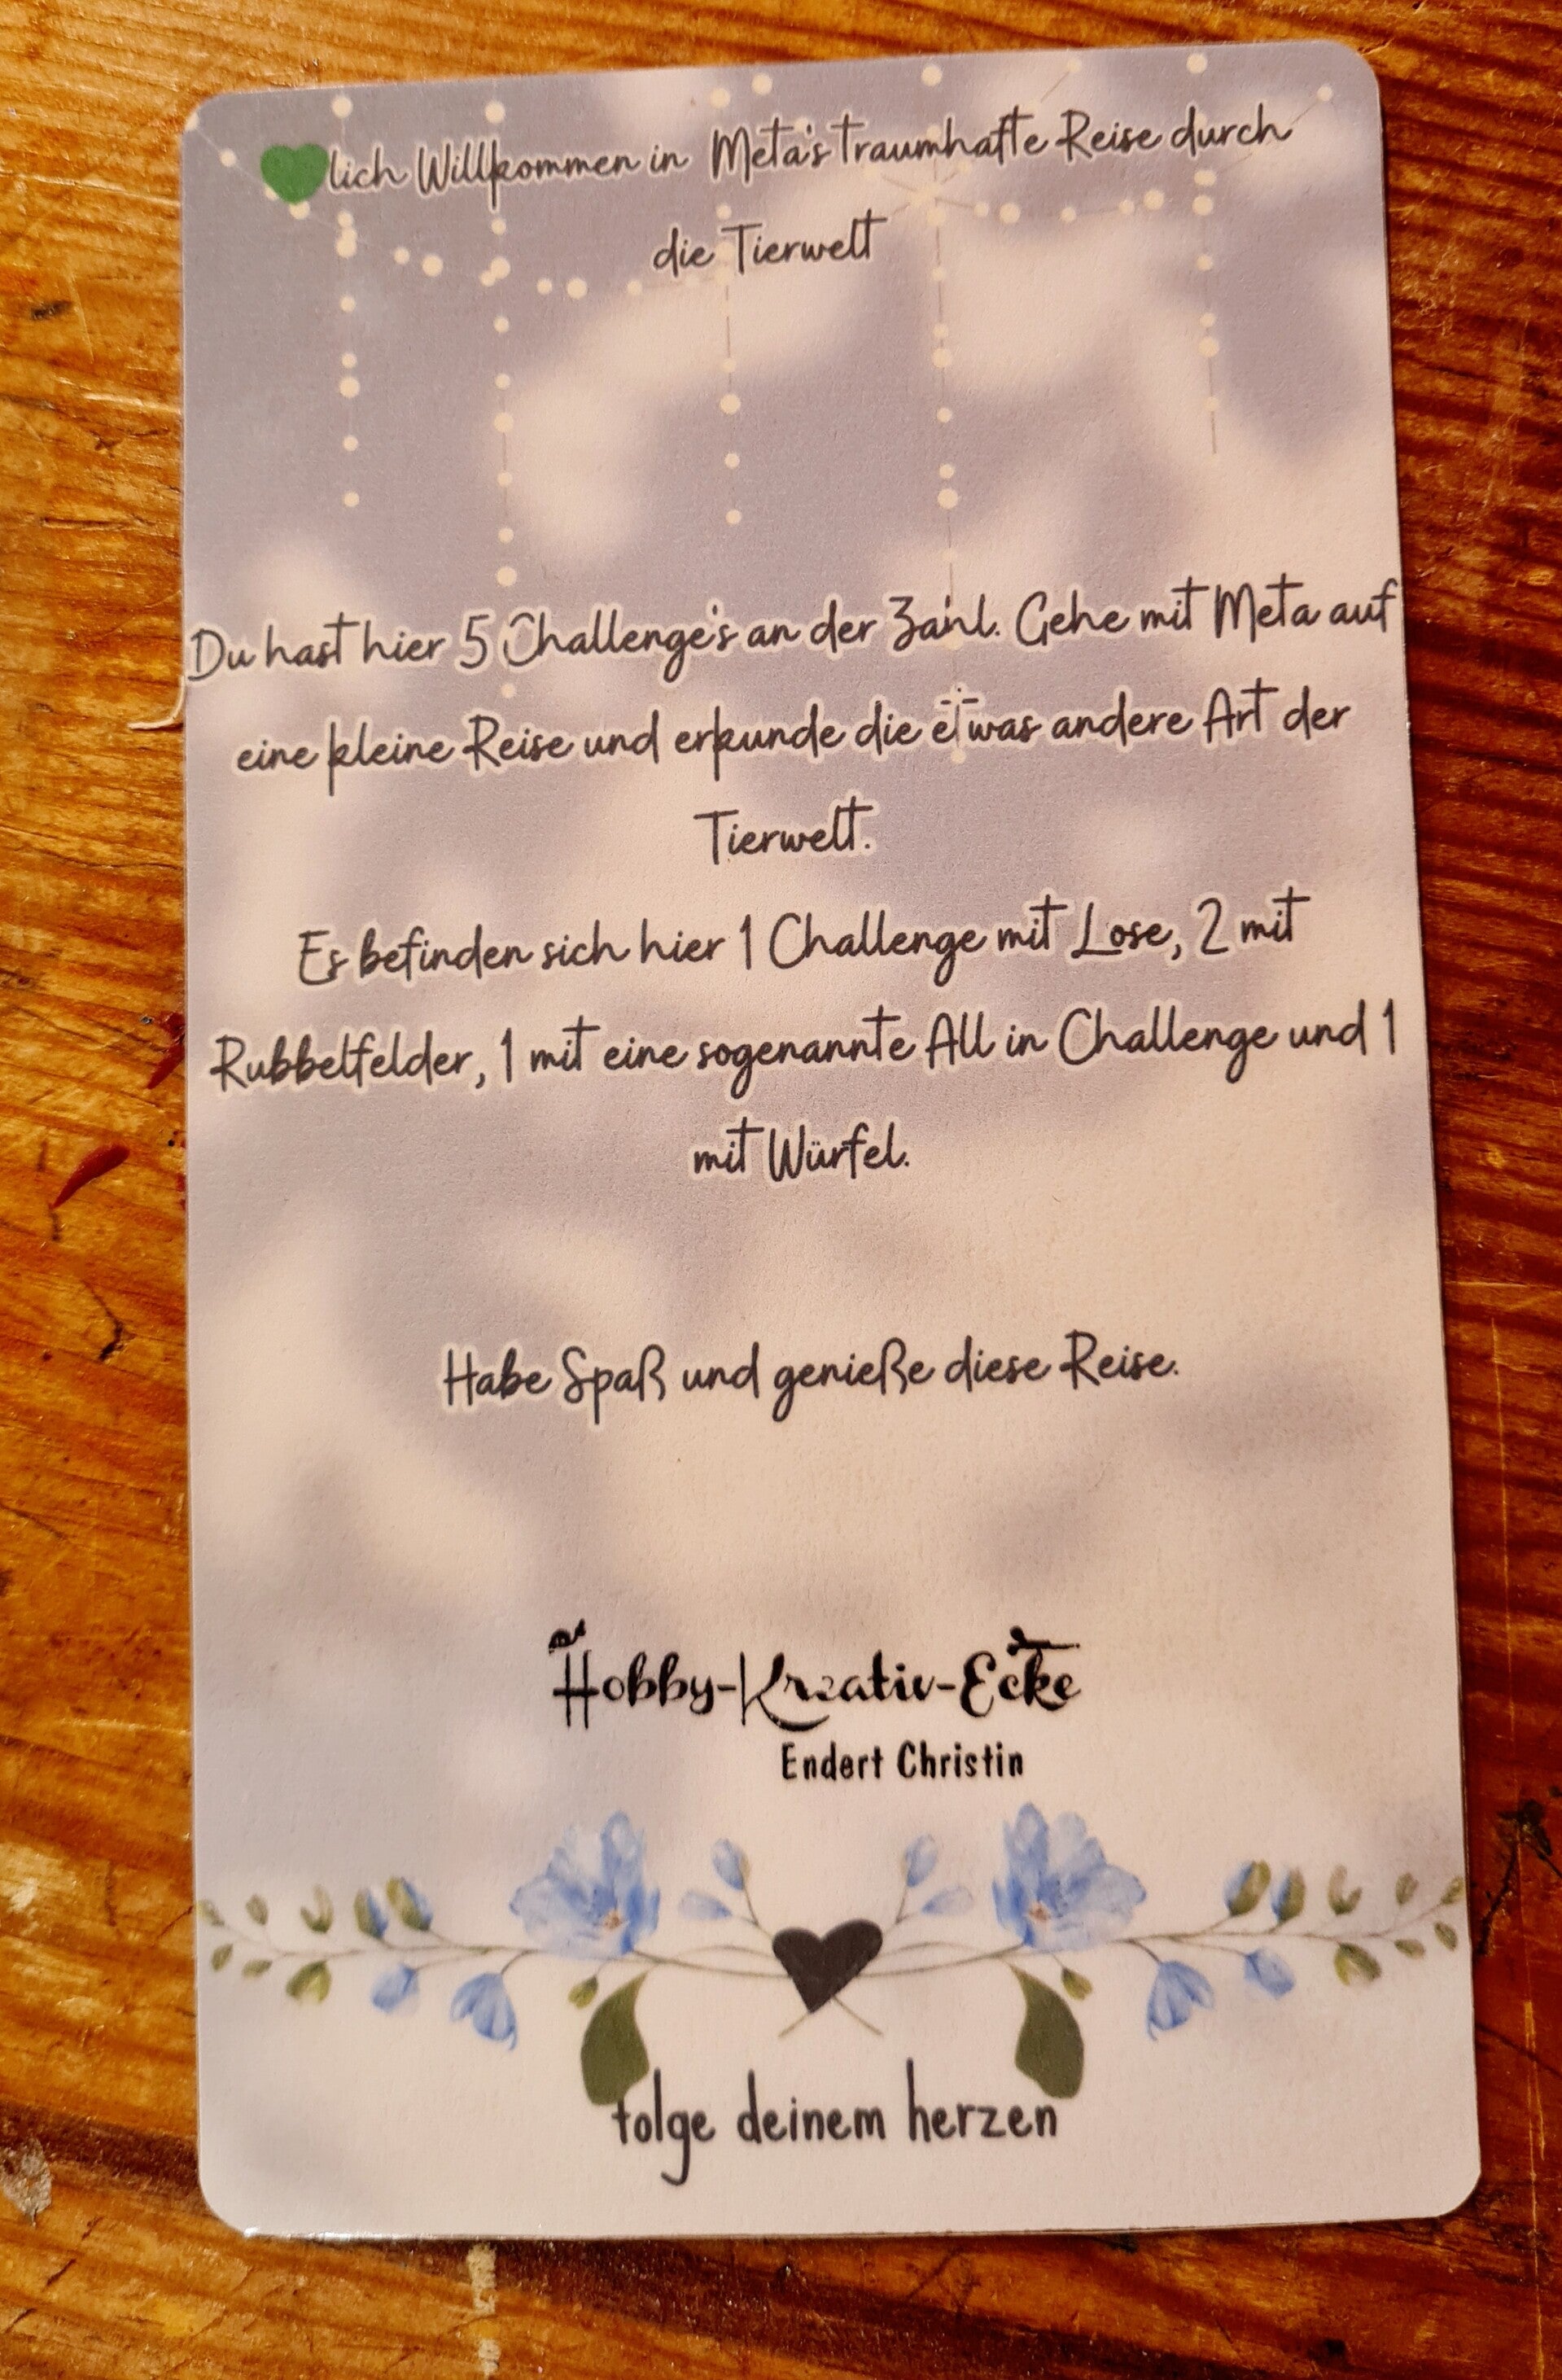 💚lich Willkommen in Meta's traumhafte Reise durch
die Tierwelt
Du hast hier 5 Challenge's an der Zahl. Gehe mit Meta auf
eine kleine Reise und erkunde die etwas andere Art der
Tierwelt.
Es befinden sich hier 1 Challenge mit Lose, 2 mit
Rubbelfelder, 1 mit eine sogenannte All in Challenge und 1
mit Würfel.
Habe Spaß und genieße diese Reise.
Hobby-Kreativ-Ecke
Endert Christin
folge deinem herzen